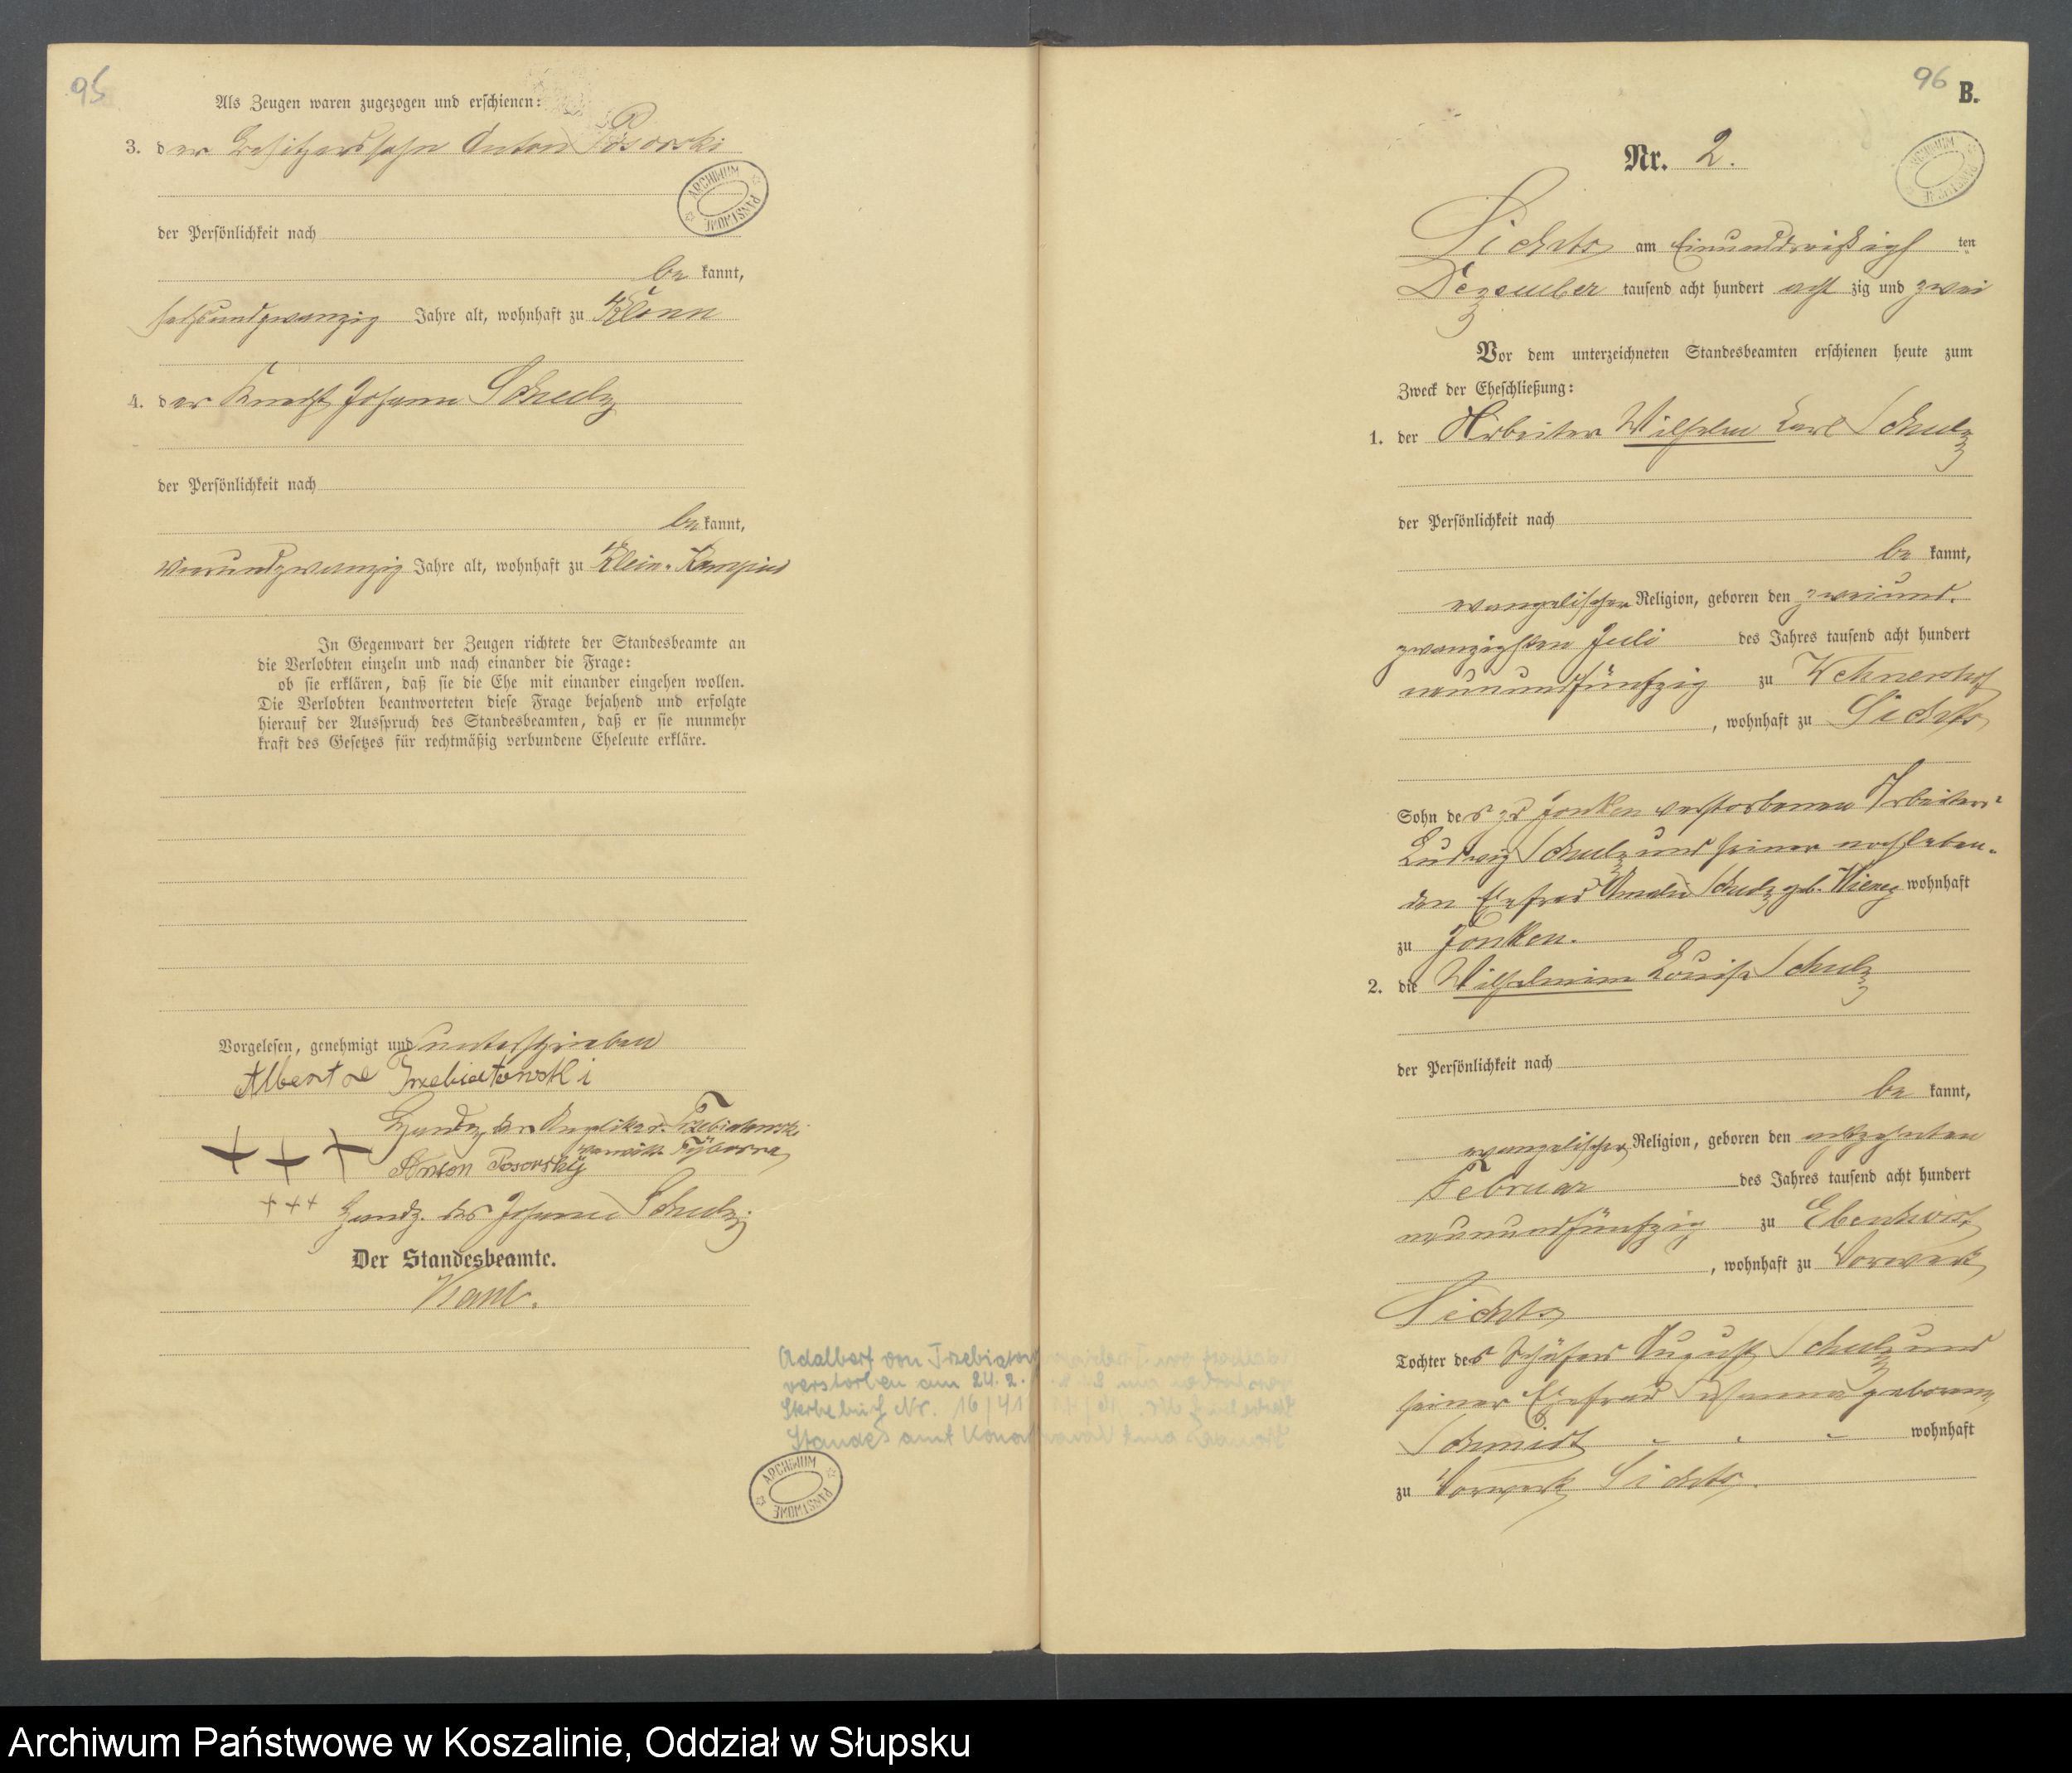 95
Als Zeugen waren zugezogen und erschienen:
3. der Besitzerssohn Anton Posorski
ARCHIWUM PAŃSTWOWE
der Persönlichkeit nach
be kannt,
sechsundzwanzig Jahre alt, wohnhaft zu Klonn
4. der Knecht Johann Schulz
der Persönlichkeit nach
be kannt,
vierundzwanzig Jahre alt, wohnhaft zu Klein-
In Gegenwart der Zeugen richtete der Standesbeamte an
die Verlobten einzeln und nach einander die Frage:
ob sie erklären, daß sie die Ehe mit einander eingehen wollen.
Die Verlobten beantworteten diese Frage bejahend und erfolgte
hierauf der Ausspruch des Standesbeamten, daß er sie nunmehr
kraft des Gesetzes für rechtmäßig verbundene Eheleute erkläre.
Vorgelesen, genehmigt und unterschrieben
Albert Trzebiatowski
Handz. der Trzebiatowski
+ + + Anton Posorski
+++ Handz. des Johann Schulz
Der Standesbeamte.
Adalbert von Trzebiatow
verstorben am 24. 2.
Sterbebuch Nr. 16/41
Standesamt
ARCHIWUM PAŃSTWOWE
96
B.
Nr. 2.
ARCHIWUM PAŃSTWOWE
am Einunddreißigsten
Dezember tausend acht hundert acht zig und zwei
Vor dem unterzeichneten Standesbeamten erschienen heute zum
Zweck der Eheschließung:
1. der Arbeiter Wilhelm Carl Schulz
der Persönlichkeit nach
be kannt,
evangelischer Religion, geboren den zweiund-
zwanzigsten Juli des Jahres tausend acht hundert
neunundfünfzig zu
, wohnhaft zu
Sohn des zu verstorbenen Arbeiters
Ludwig Schulz und seiner noch leben-
den Ehefrau Schulz geb. wohnhaft
zu
2. die Wilhelmine Louise Schulz
der Persönlichkeit nach
be kannt,
evangelischer Religion, geboren den achtzehnten
Februar des Jahres tausend acht hundert
neunundfünfzig zu
, wohnhaft zu Vorwerk
Tochter des Schäfers August Schulz und
seiner Ehefrau geborene
Schmidt wohnhaft
zu Vorwerk
Archiwum Państwowe w Koszalinie, Oddział w Słupsku